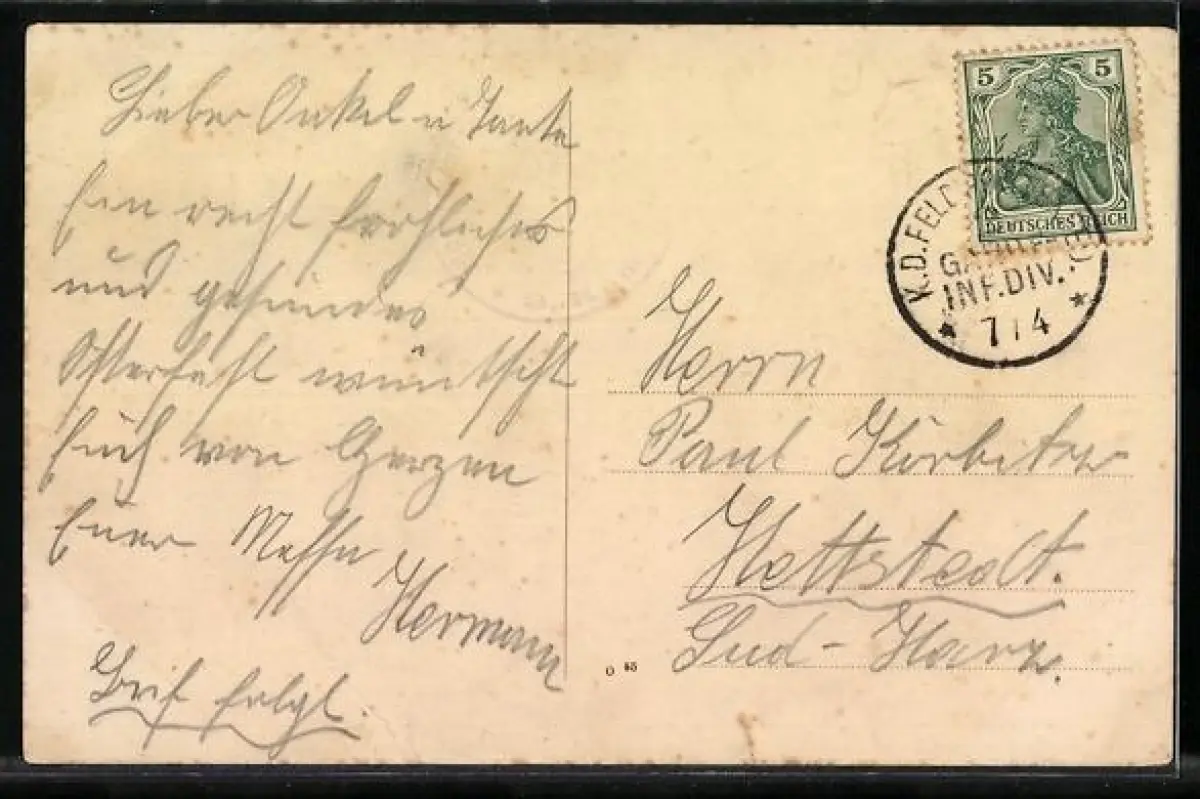 Lieber Onkel u Tante
Ein recht fröhliches
und gesundes
Osterfest wünscht
Euch von Herzen
Euer Neffe
Hermann
Brief folgt.
5 5
DEUTSCHES REICH
K.D. FELD
INF. DIV.
7/4
Herrn
Paul Körbitz
Hettstedt.
Süd-Harz.